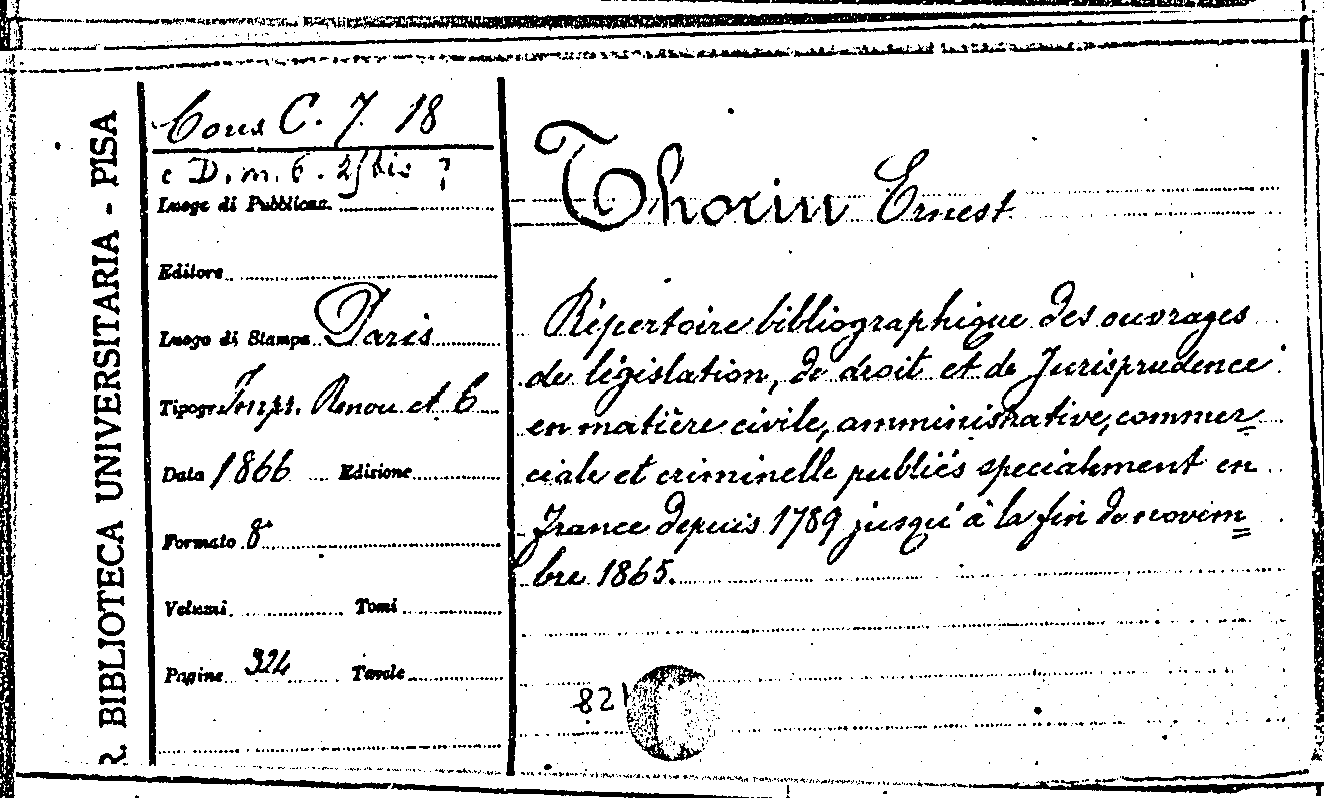 R. BIBLIOTECA UNIVERSITARIA - PISA
Cons C. 7. 18
e D. m. 6. 25 bis ?
Luogo di Pubblicaz.
Editore
Luogo di Stampa Paris
Tipogr. Impr. Renou et
Data 1866 Edizione
Formato 8°
Volumi Tomi
Pagine 324 Tavole
Thorin Ernest
Répertoire bibliographique des ouvrages
de législation, de droit et de Jurisprudence
en matière civile, amministrative, commer=
ciale et criminelle publiés specialement en
France depuis 1789 jusqu'à la fin de novem=
bre 1865.
821